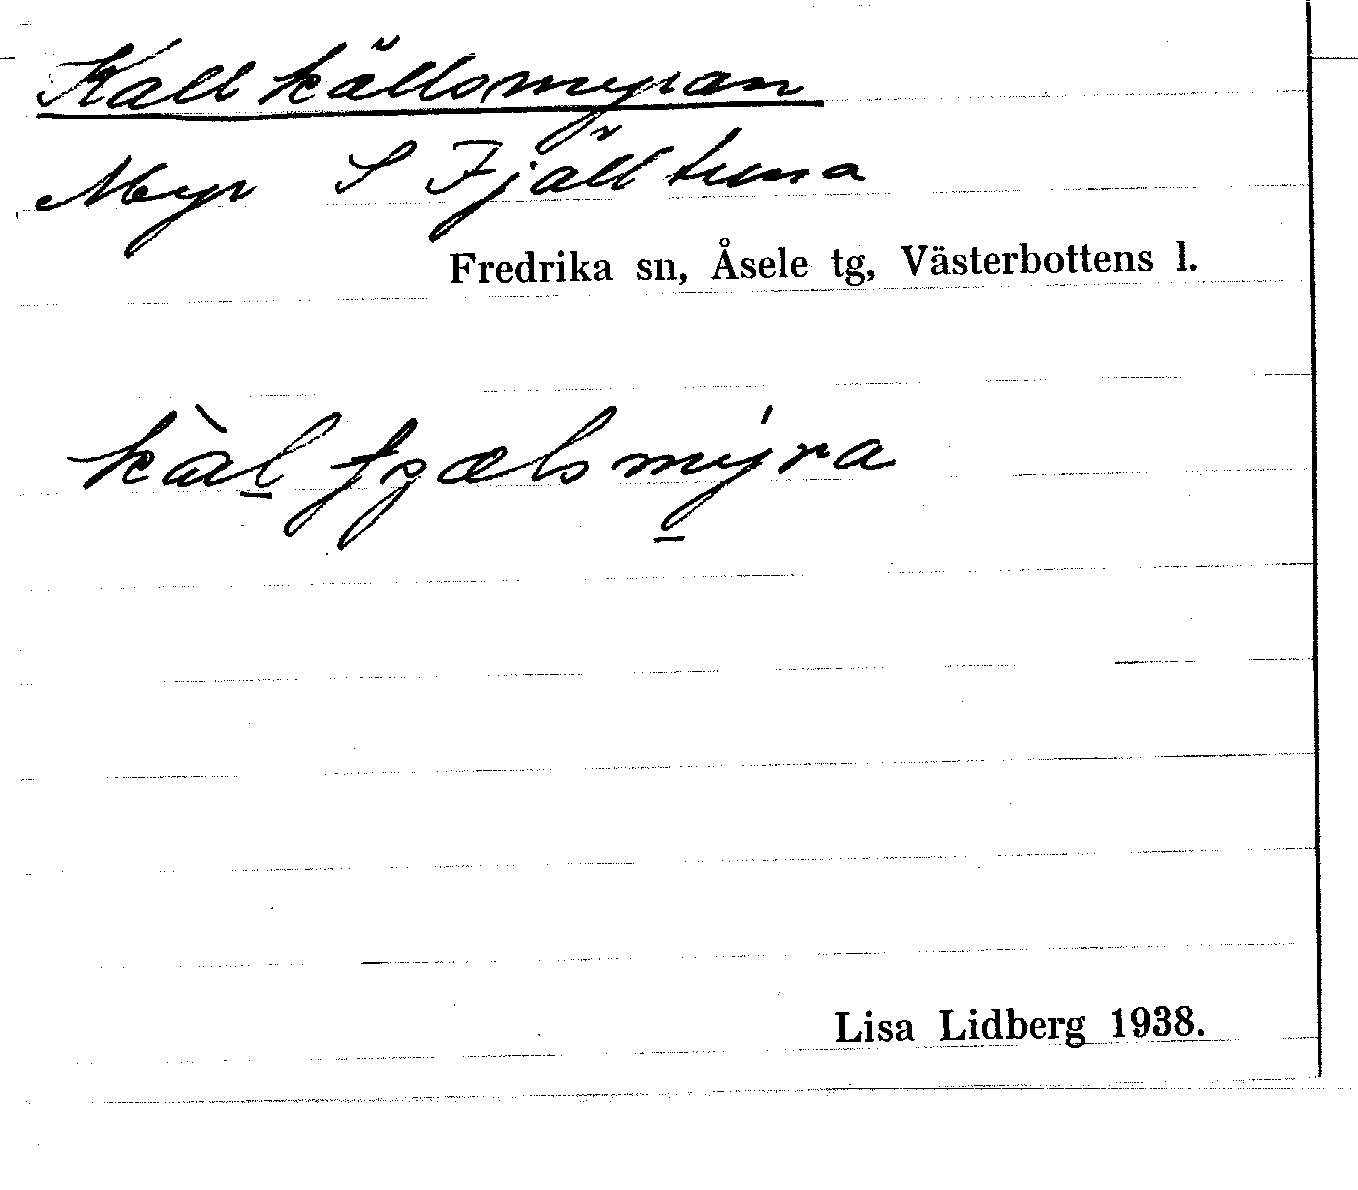 Kallkällsmyran
Myr S Fjälltuna
Fredrika sn, Åsele tg, Västerbottens l.
kàl̲ʃɟælsmýra
Lisa Lidberg 1938.